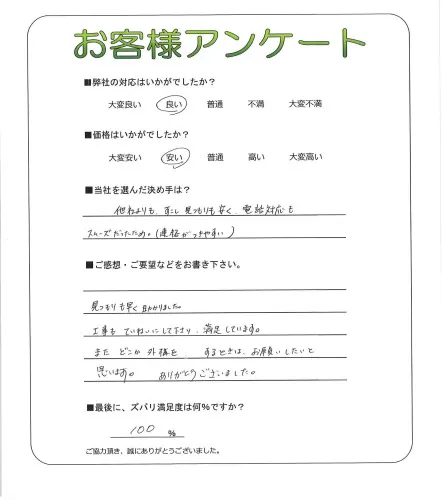 お客様アンケート
■弊社の対応はいかがでしたか？
大変良い 良い 普通 不満 大変不満
■価格はいかがでしたか？
大変安い 安い 普通 高い 大変高い
■当社を選んだ決め手は？
他社よりも、すこし見つもりも安く、電話対応も
スムーズだったため。(連絡がつきやすい)
■ご感想・ご要望などをお書き下さい。
見つもりも早く助かりました。
工事も ていねいにして下さり、満足しています。
また どこか 外構を するときは、お願いしたいと
思います。 ありがとうございました。
■最後に、ズバリ満足度は何%ですか？
100 %
ご協力頂き、誠にありがとうございました。